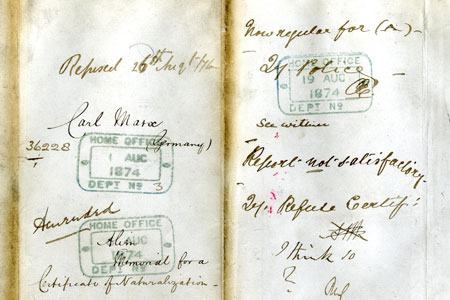 Refused 26th Augt /74
Carl Marx
(Germany)
36228
1
HOME OFFICE
1 AUG
1874
DEPT No 3
HOME OFFICE
AUG
1874
DEPT No
Alien
Memorial for a
Certificate of Naturalization
Now regular for
Qy Police
HOME OFFICE
19 AUG
1874
DEPT No
See within
Report not satisfactory.
Qy. Refuse Certif:
I think so
?